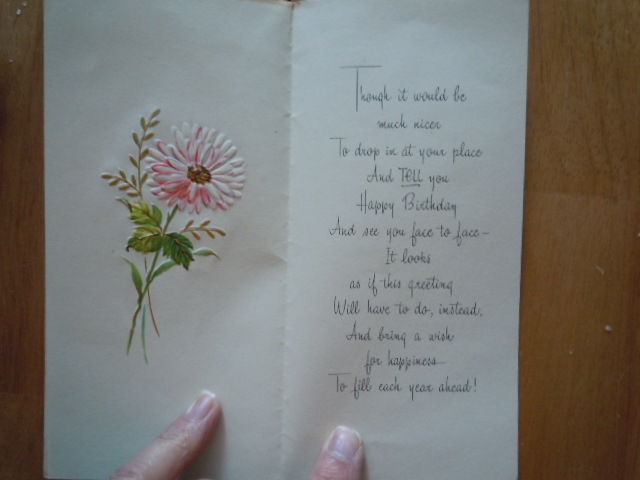 Though it would be
much nicer
To drop in at your place
And TELL you
Happy Birthday
And see you face to face–
It looks
as if this greeting
Will have to do, instead,
And bring a wish
for happiness
To fill each year ahead!